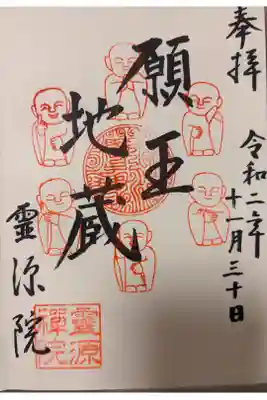 奉拝
令和二年
十一月三十日
願王
地蔵
靈源院
靈源
禅院